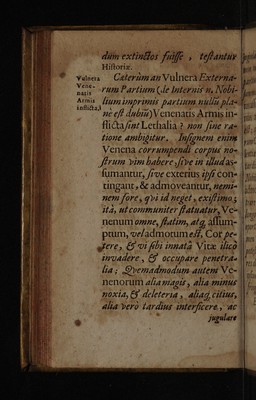 dum extinctos fuisse, testantur
Historiæ.
Vulnera
Vene-
natis
Armis
inflicta,
Cæterùm an Vulnera Externa-
rum Partium (de Internis n. Nobi-
lium imprimis partium nulli pla-
nè est dubiũ) Venenatis Armis in-
flicta sint Lethalia? non sine ra-
tione ambigitur. Insignem enim
Venena corrumpendi corpus no-
strum vim habere, sive in illud as-
sumantur, sive exterius ipsi con-
tingant, & admoveantur, nemi-
nem fore, qvi id neget, existimo;
ità, ut communiter statuatur, Ve-
nenum omne, statim, atq; assum-
ptum, vel admotum est, Cor pe-
tere, & vi sibi innatâ Vitæ ilicò
invadere, & occupare penetra-
lia; Qvemadmodum autem Ve-
nenorum alia magis, alia minus
noxia, & deleteria, aliaq; citius,
alia verò tardius interficere, ac
jugulare